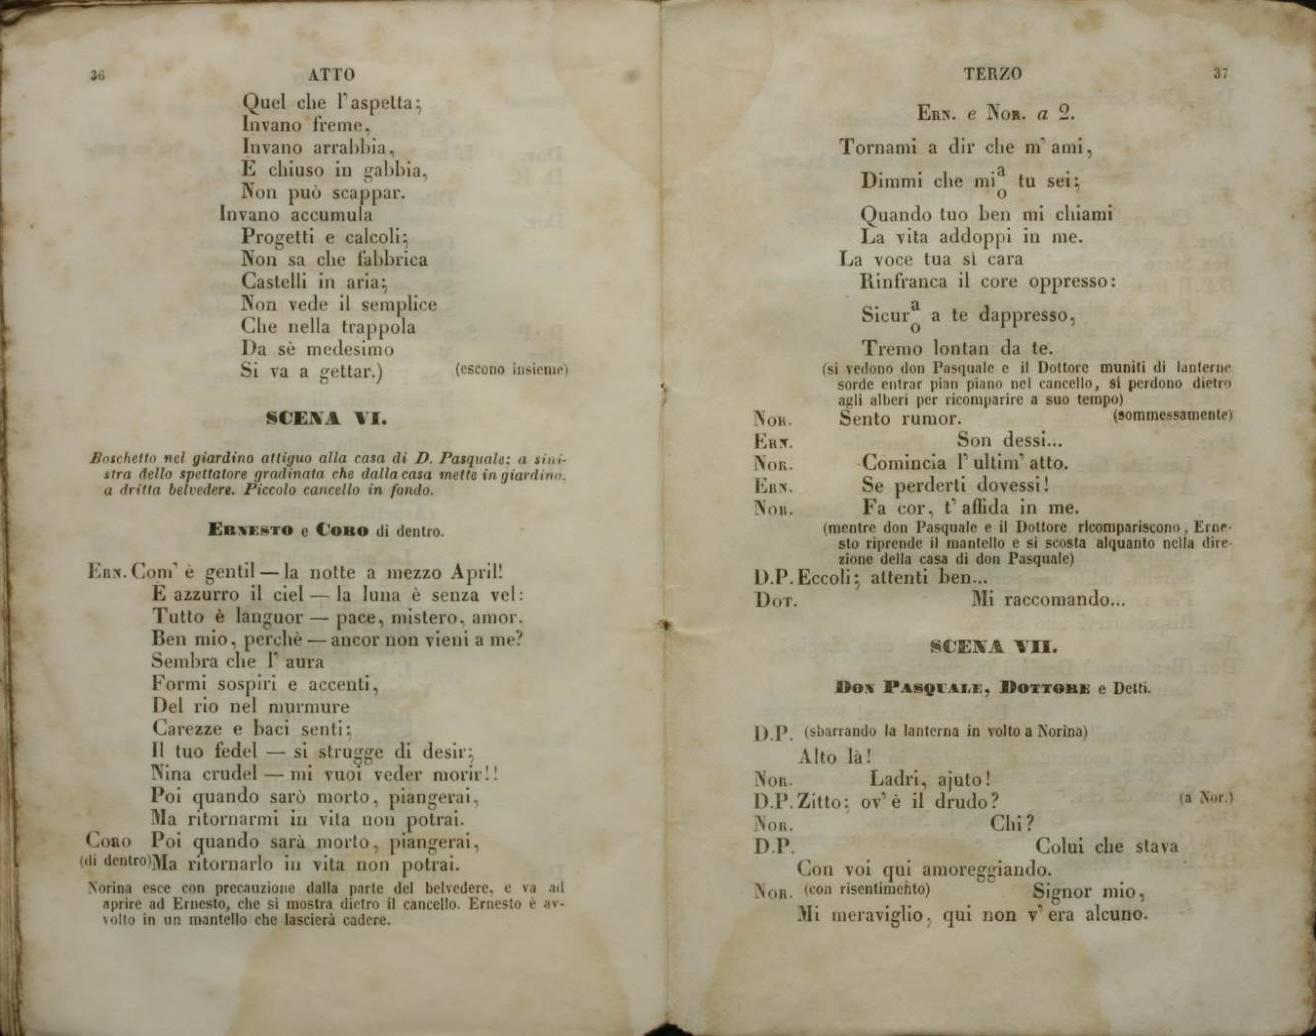 36 ATTO
Quel che l'aspetta;
Invano freme,
Invano arrabbia,
È chiuso in gabbia,
Non può scappar.
Invano accumula
Progetti e calcoli;
Non sa che fabbrica
Castelli in aria;
Non vede il semplice
Che nella trappola
Da sè medesimo
Si va a gettar.) (escono insieme)
SCENA VI.
Boschetto nel giardino attiguo alla casa di D. Pasquale; a sini-
stra dello spettatore gradinata che dalla casa mette in giardino,
a dritta belvedere. Piccolo cancello in fondo.
ERNESTO e CORO di dentro.
ERN. Com' è gentil — la notte a mezzo April!
È azzurro il ciel — la luna è senza vel:
Tutto è languor — pace, mistero, amor.
Ben mio, perchè — ancor non vieni a me?
Sembra che l' aura
Formi sospiri e accenti,
Del rio nel murmure
Carezze e baci senti;
Il tuo fedel — si strugge di desir;
Nina crudel — mi vuoi veder morir!!
Poi quando sarò morto, piangerai,
Ma ritornarmi in vita non potrai.
CORO Poi quando sarà morto, piangerai,
(di dentro) Ma ritornarlo in vita non potrai.
Norina esce con precauzione dalla parte del belvedere, e va ad
aprire ad Ernesto, che si mostra dietro il cancello. Ernesto è av-
volto in un mantello che lascierà cadere.
TERZO 37
ERN. e NOR. a 2.
Tornami a dir che m' ami,
Dimmi che mi a/o tu sei;
Quando tuo ben mi chiami
La vita addoppi in me.
La voce tua sì cara
Rinfranca il core oppresso:
Sicur a/o a te dappresso,
Tremo lontan da te.
(si vedono don Pasquale e il Dottore muniti di lanterne
sorde entrar pian piano nel cancello, si perdono dietro
agli alberi per ricomparire a suo tempo)
NOR. Sento rumor. (sommessamente)
ERN. Son dessi...
NOR. Comincia l' ultim' atto.
ERN. Se perderti dovessi!
NOR. Fa cor, t' affida in me.
(mentre don Pasquale e il Dottore ricompariscono, Erne-
sto riprende il mantello e si scosta alquanto nella dire-
zione della casa di don Pasquale)
D.P. Eccoli; attenti ben...
DOT. Mi raccomando...
SCENA VII.
DON PASQUALE, DOTTORE e Detti.
D.P. (sbarrando la lanterna in volto a Norina)
Alto là!
NOR. Ladri, ajuto!
D.P. Zitto; ov' è il drudo? (a Nor.)
NOR. Chi?
D.P. Colui che stava
Con voi qui amoreggiando.
NOR. (con risentimento) Signor mio,
Mi meraviglio, qui non v' era alcuno.